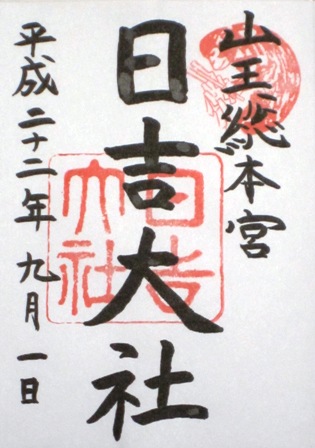 山王総本宮
日吉大社
平成二十二年九月一日
日吉大社